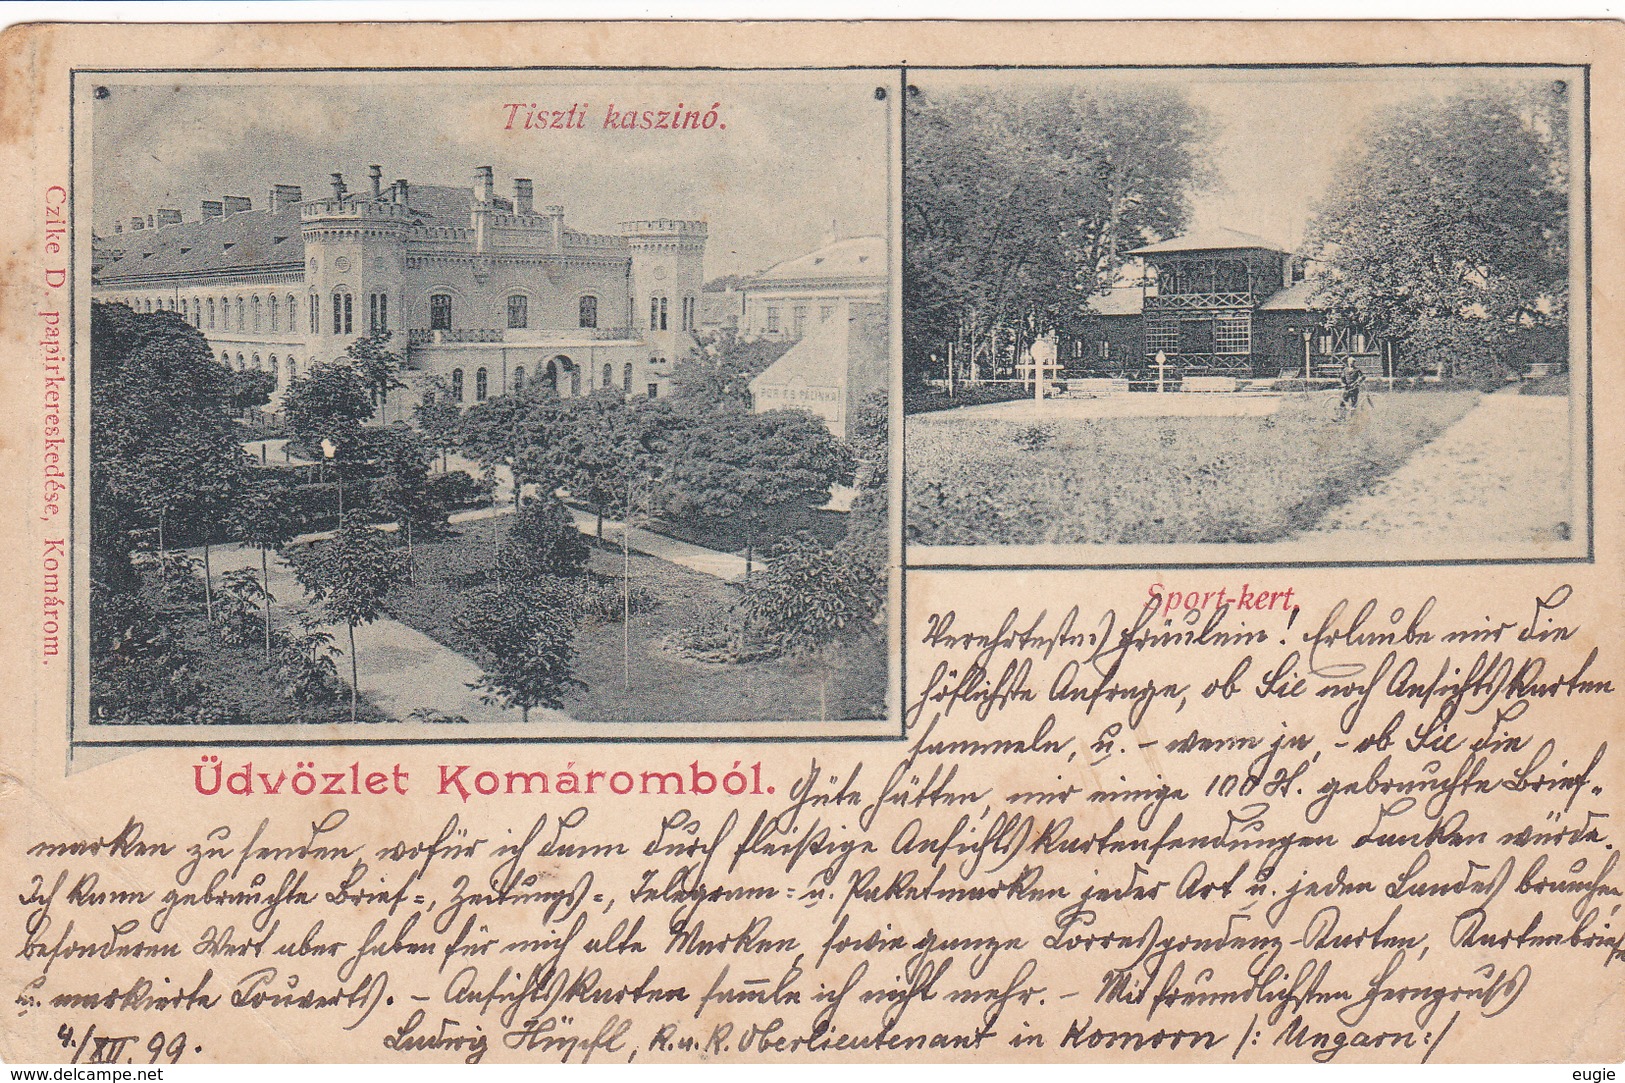 Tiszti kaszinó.
Czike D. papirkereskedése, Komárom.
Sport-kert.
Üdvözlet Komáromból.
Verehrteste:) Fräulein! Erlaube mir die
höflichste Anfrage, ob Sie noch Ansichtskarten
sammeln, u. – wenn ja, – ob Sie die
Güte hätten, mir einige 100 St. gebrauchte Brief-
marken zu senden, wofür ich dann durch fleißige Ansichtskartensendungen danken würde.
Ich kann gebrauchte Brief-, Zeitungs-, Telegram- u. Paketmarken jeder Art u. jeden Landes brauchen,
besonderen Wert aber haben für mich alte Marken, sowie ganze Correspondenz-Karten, Kartenbriefe
u. markierte Couverts. – Ansichtskarten sammle ich nicht mehr. – Mit freundlichsten Ferngruß
4./XII. 99.
Ludwig Hüpfl, k. u. k. Oberlieutenant in Komorn /: Ungarn :/
www.delcampe.net
eugie